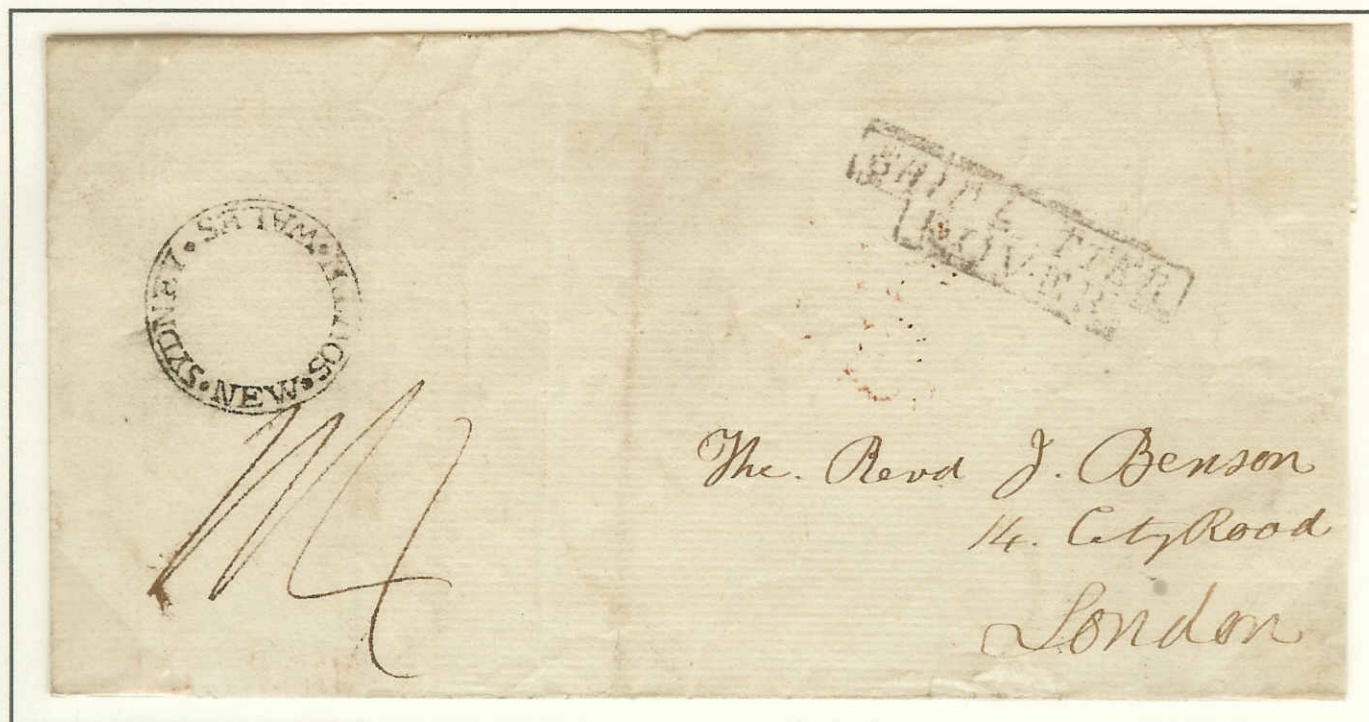 SYDNEY · NEW · SOUTH · WALES ·
SHIP LETTER
DOVER
The. Revd J. Benson
14. City Road
London